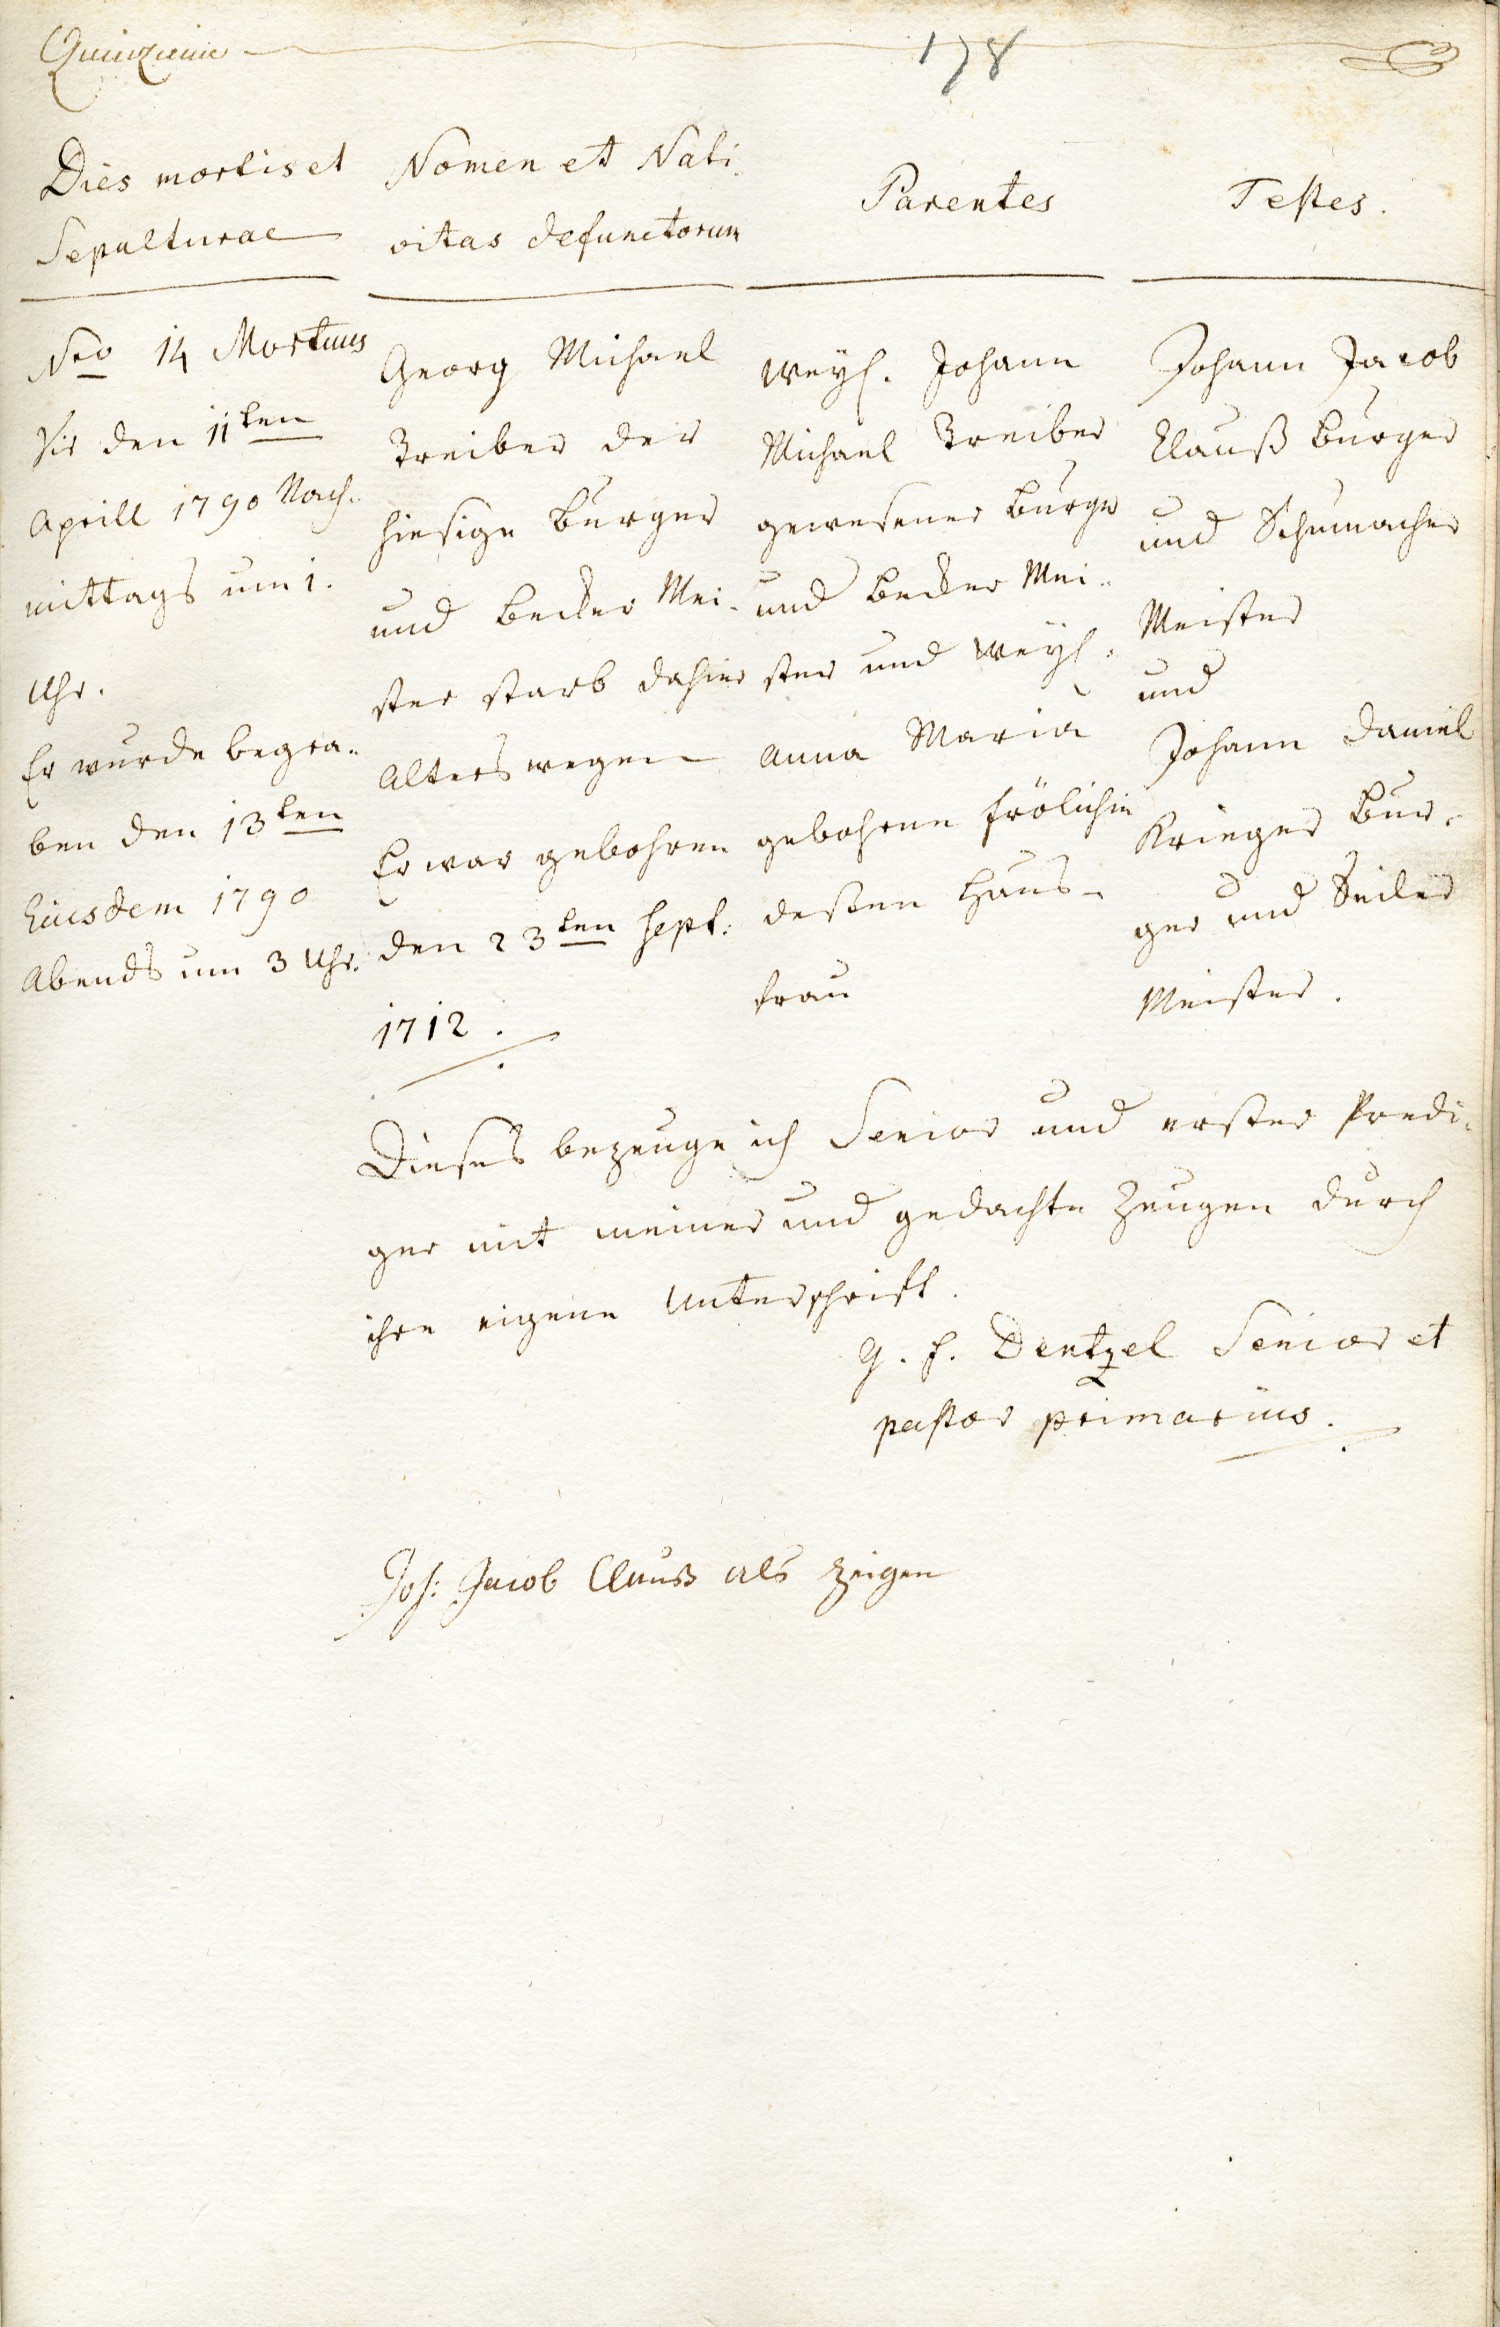 Quinzieme
178
Dies mortis et
Sepulturae
Nomen et Nati.
vitas defunctorum
Parentes
Testes.
Nro 14 Mortuus
Vir den 11ten
Aprill 1790 Nach..
mittags um 1.
Uhr.
Er wurde begra..
ben den 13ten
Eiusdem 1790
Abends um 3 Uhr.
Georg Michael
Treiber der
hiesige Burger
und Becker Mei.
ster starb dahier
Alters wegen
Er war gebohren
den 23ten Sept:
1712.
weyl. Johann
Michael Treiber
gewesener Burger
und Becker Mei..
ster und weyl.
Anna Maria
gebohrne Frölichin
deßen Haus-
frau
Johann Jacob
Clauß Burger
und Schumacher
Meister
und
Johann Daniel
Krieger Bur.
ger und Seiler
Meister.
Dieses bezeuge ich Senior und erster Predi.
ger mit meiner und gedachte Zeugen durch
ihre eigene Unterschrift.
G. F. Dentzel Senior et
pastor primarius.
Joh: Jacob Clauß als zeigen